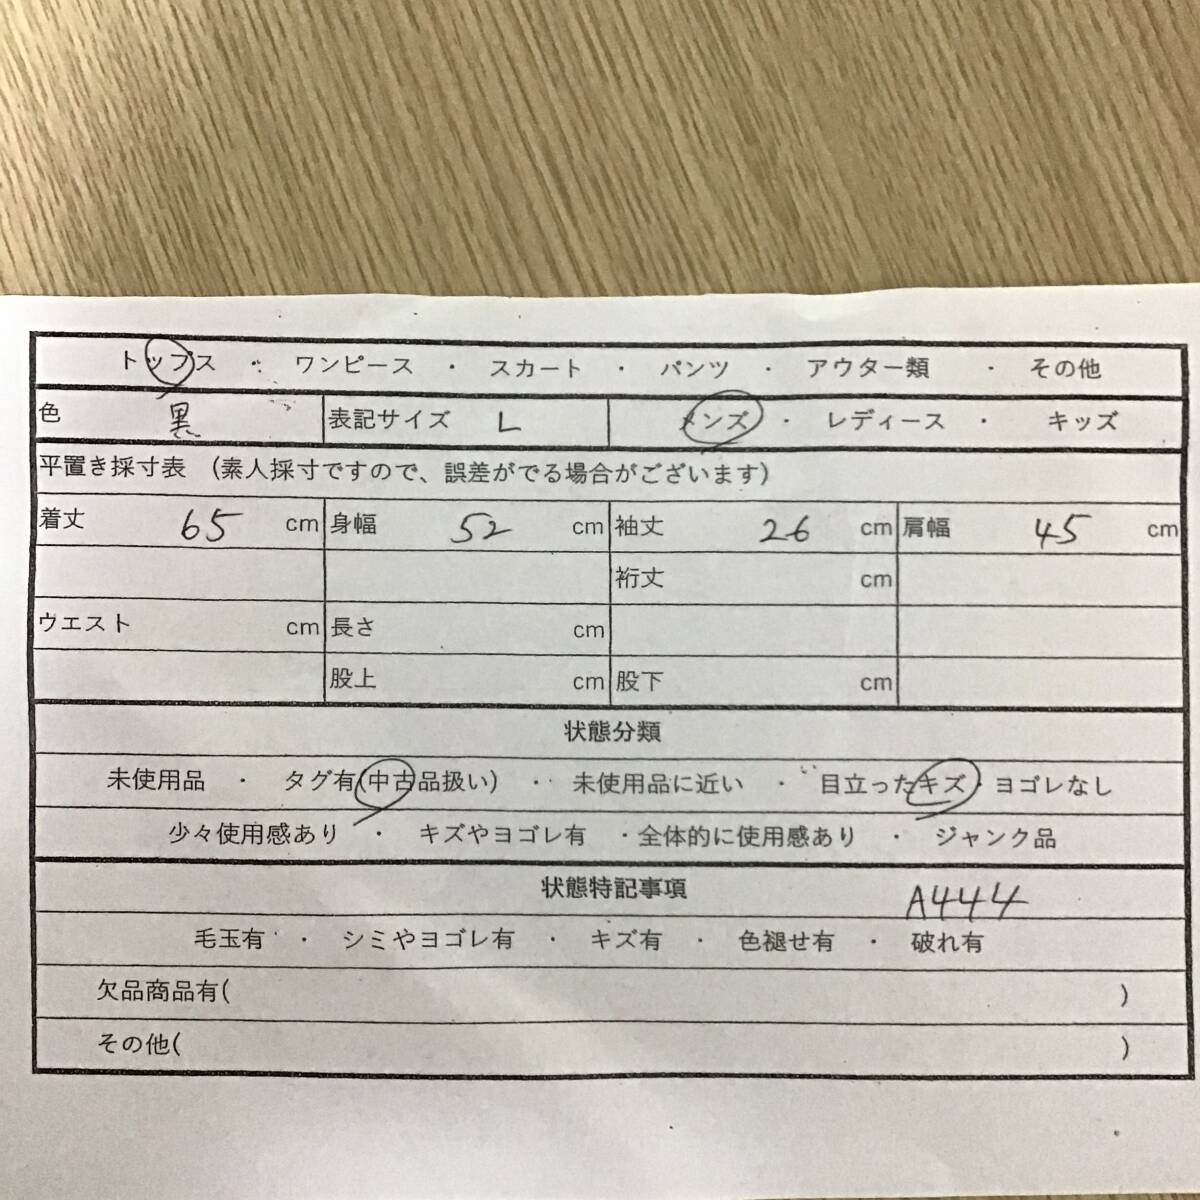 トップス ・ ワンピース ・ スカート ・ パンツ ・ アウター類 ・ その他
色 黒 表記サイズ L メンズ ・ レディース ・ キッズ
平置き採寸表 (素人採寸ですので、誤差がでる場合がございます)
着丈 65 cm 身幅 52 cm 袖丈 26 cm 肩幅 45 cm
裄丈 cm
ウエスト cm 長さ cm
股上 cm 股下 cm
状態分類
未使用品 ・ タグ有(中古品扱い) ・ 未使用品に近い ・ 目立ったキズ・ヨゴレなし
少々使用感あり ・ キズやヨゴレ有 ・全体的に使用感あり ・ ジャンク品
状態特記事項 A444
毛玉有 ・ シミやヨゴレ有 ・ キズ有 ・ 色褪せ有 ・ 破れ有
欠品商品有( )
その他( )